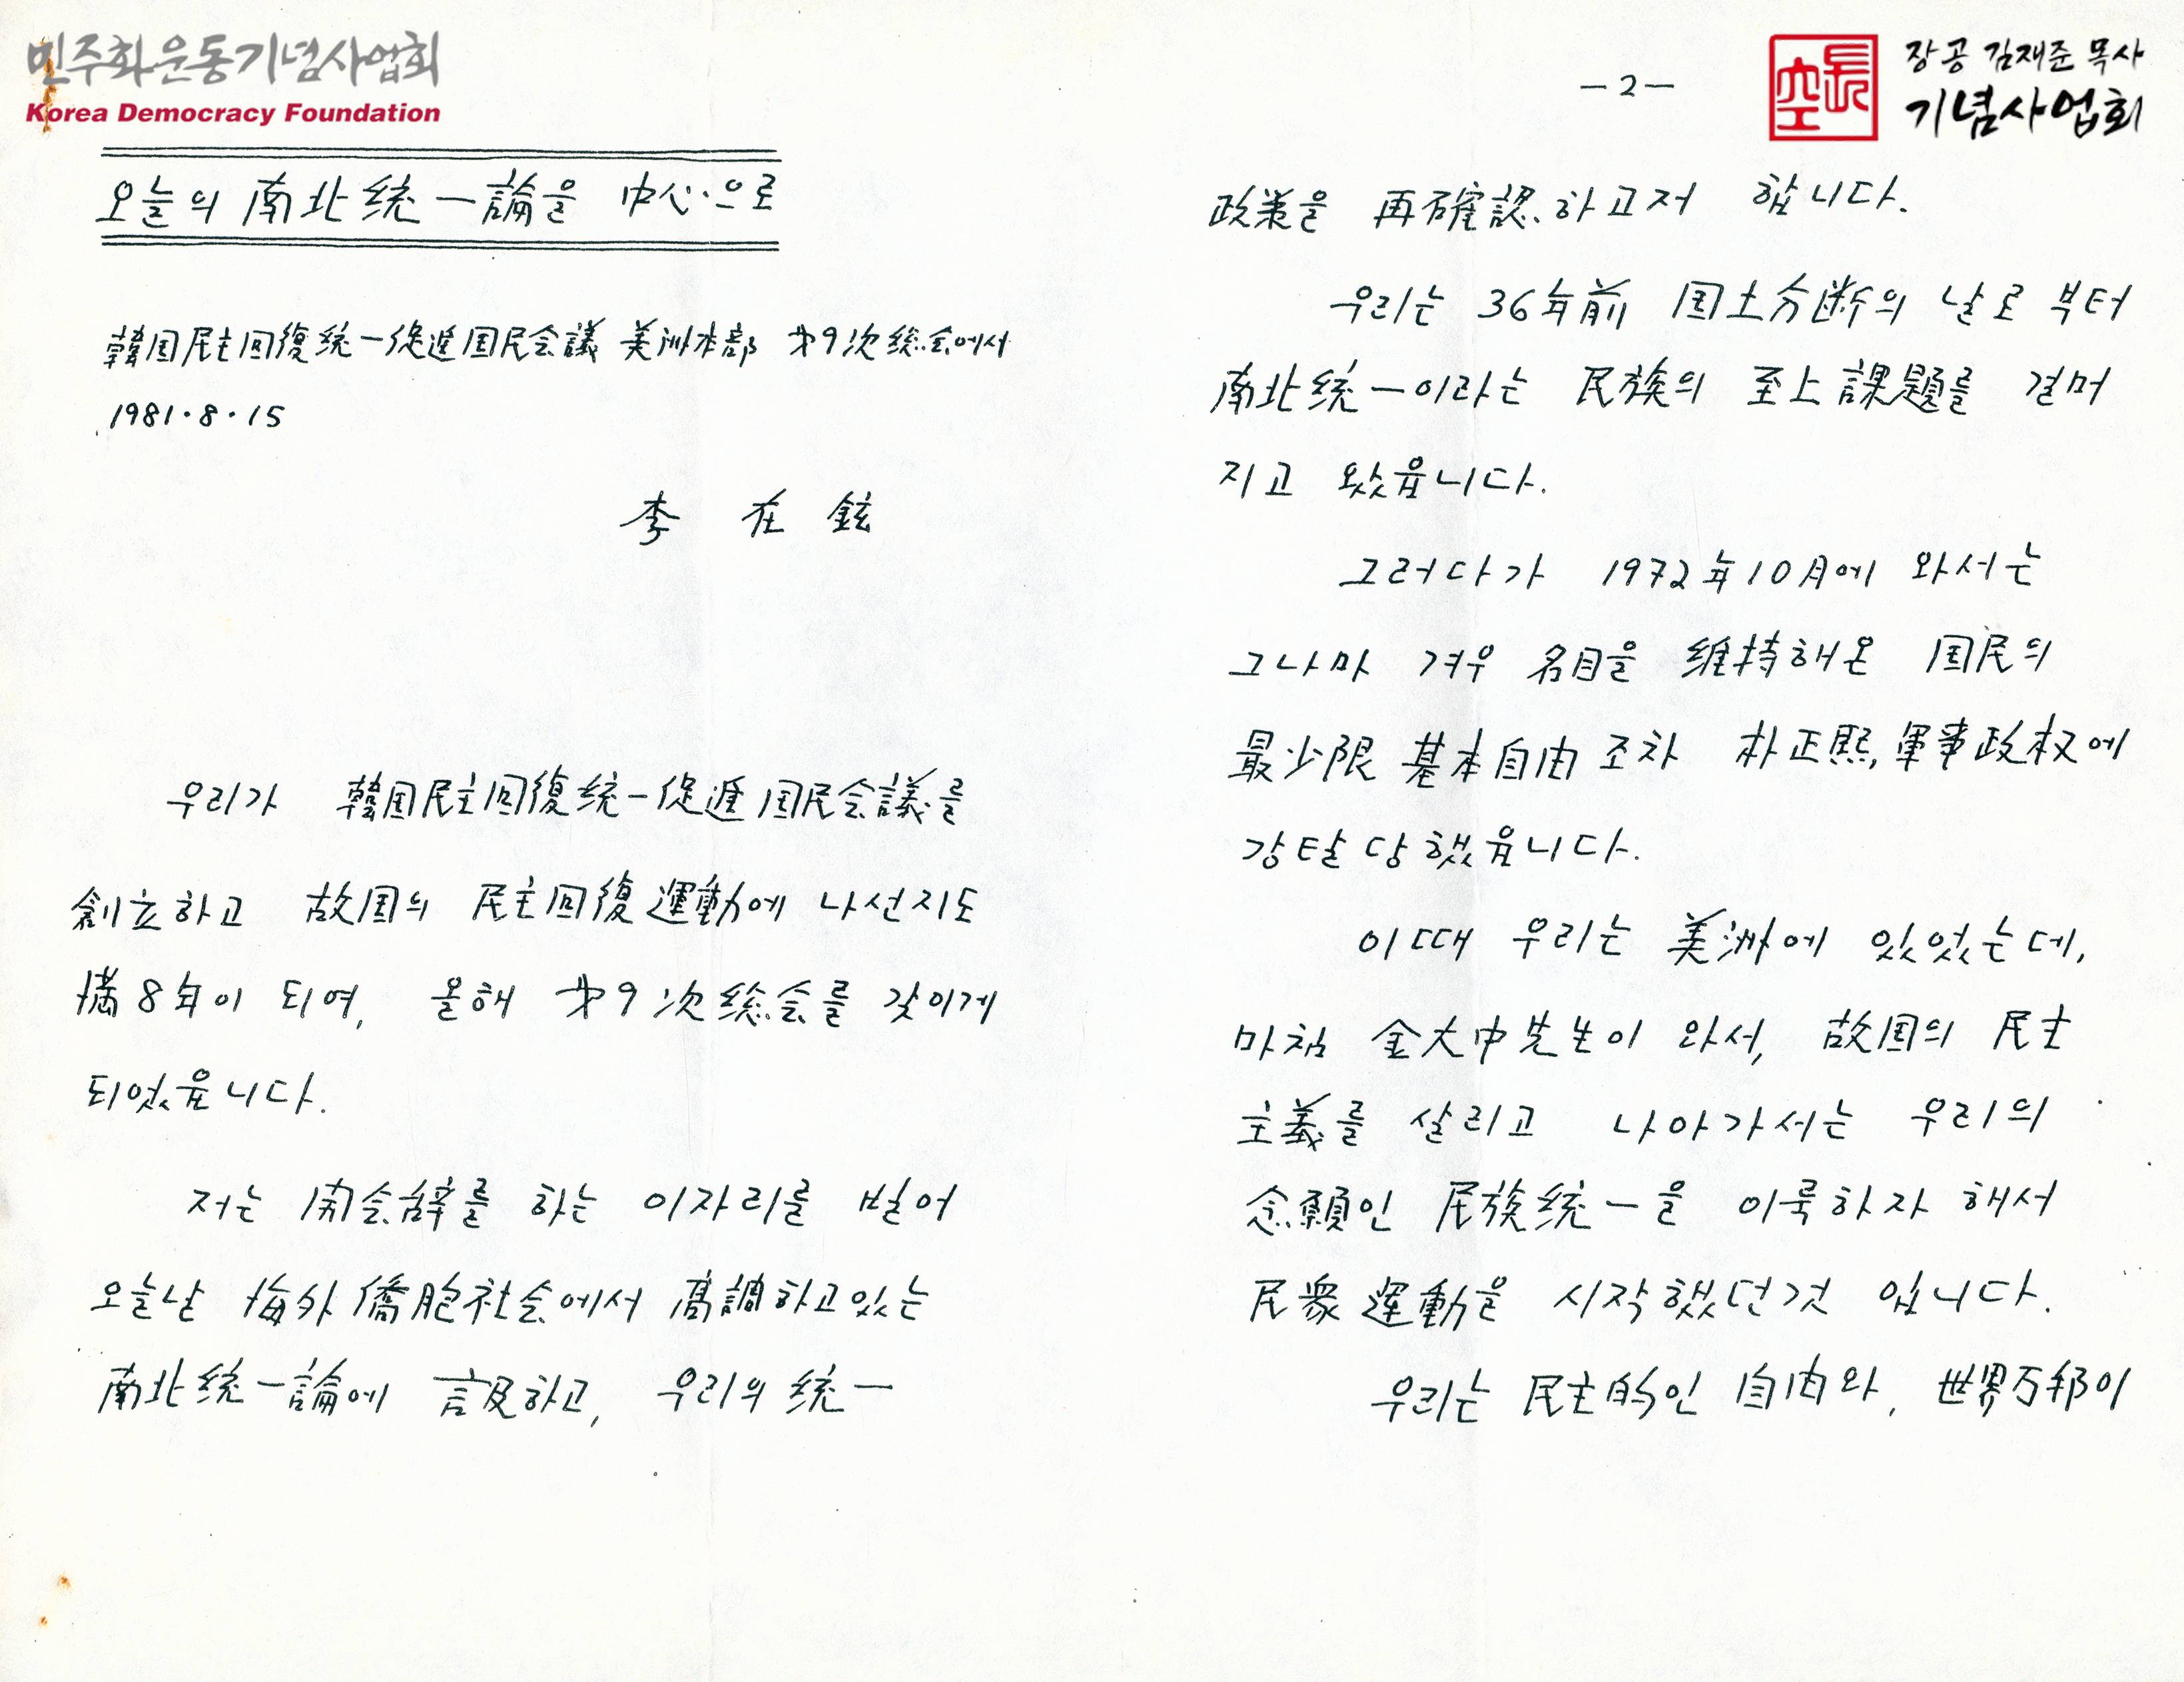 민주화운동기념사업회
Korea Democracy Foundation
오늘의 南北統一論을 中心으로
韓国民主回復統一促進国民会議 美洲本部 才9次 総会에서
1981.8.15
李 在 鉉
우리가 韓国民主回復統一促進国民会議를
創立하고 故国의 民主回復運動에 나선지도
満8年이 되여, 올해 才9次 総会를 갖이게
되었읍니다.
저는 開会辞를 하는 이자리를 빌어
오늘날 海外僑胞社会에서 高調하고있는
南北統一論에 言及하고, 우리의 統一
-2-
長空
장공 김재준 목사
기념사업회
政策을 再確認하고저 합니다.
우리는 36年前 国土分断의 날로 부터
南北統一이라는 民族의 至上課題를 걸머
지고 왔읍니다.
그러다가 1972年10月에 와서는
그나마 겨우 名目을 維持해온 国民의
最少限 基本自由조차 朴正熙,軍事政权에
강탈당했읍니다.
이때 우리는 美洲에 있었는데,
마침 金大中先生이 와서, 故国의 民主
主義를 살리고 나아가서는 우리의
念願인 民族統一을 이룩하자 해서
民衆運動을 시작했던것 입니다.
우리는 民主的인 自由와, 世界万邦이